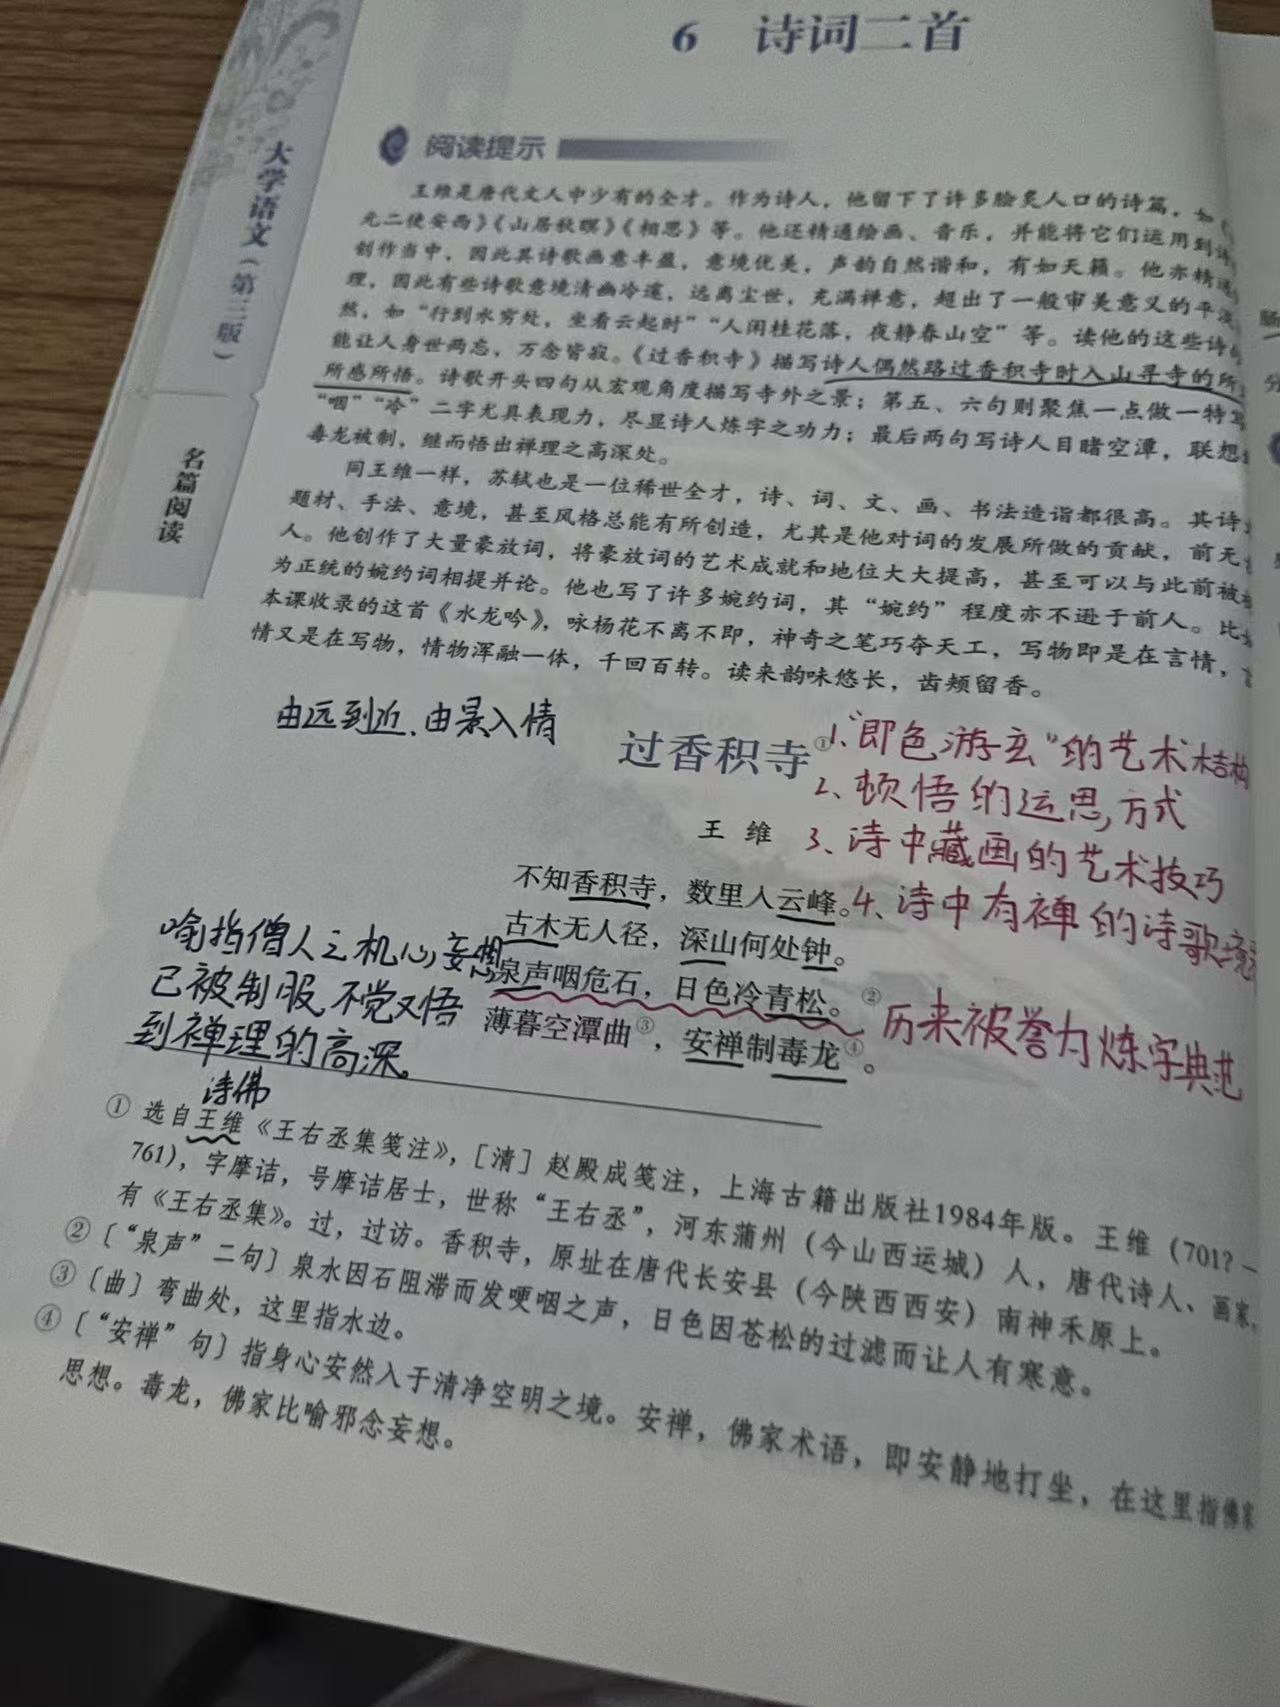 6 诗词二首
阅读提示
王维是唐代文人中少有的全才。作为诗人，他留下了许多脍炙人口的诗篇，如
元二使安西》《山居秋暝》《相思》等。他还精通绘画、音乐，并能将它们运用到
创作当中，因此其诗歌画意丰盈，意境优美，声韵自然谐和，有如天籁。他亦精通
理，因此有些诗歌意境清幽冷邃，远离尘世，充满禅意，超出了一般审美意义的平
然，如“行到水穷处，坐看云起时”“人闲桂花落，夜静春山空”等。读他的这些诗
能让人身世两忘，万念皆寂。《过香积寺》描写诗人偶然路过香积寺时入山寻寺的所
所感所悟。诗歌开头四句从宏观角度描写寺外之景；第五、六句则聚焦一点做一特写
“咽”“冷”二字尤具表现力，尽显诗人炼字之功力；最后两句写诗人目睹空潭，联想
毒龙被制，继而悟出禅理之高深处。
同王维一样，苏轼也是一位稀世全才，诗、词、文、画、书法造诣都很高。其诗
题材、手法、意境，甚至风格总能有所创造，尤其是他对词的发展所做的贡献，前无
人。他创作了大量豪放词，将豪放词的艺术成就和地位大大提高，甚至可以与此前被
为正统的婉约词相提并论。他也写了许多婉约词，其“婉约”程度亦不逊于前人。比
本课收录的这首《水龙吟》，咏杨花不离不即，神奇之笔巧夺天工，写物即是在言情，
情又是在写物，情物浑融一体，千回百转。读来韵味悠长，齿颊留香。
由远到近、由景入情
过香积寺①
1、“即色游玄”的艺术结构
2、顿悟的运思方式
王 维
3、诗中藏画的艺术技巧
不知香积寺，数里入云峰。
4、诗中有禅的诗歌境
古木无人径，深山何处钟。
泉声咽危石，日色冷青松。②
薄暮空潭曲③，安禅制毒龙④。
历来被誉为炼字典范
喻指僧人之机心妄想
已被制服,不觉又悟
到禅理的高深。
诗佛
① 选自王维《王右丞集笺注》，［清］赵殿成笺注，上海古籍出版社1984年版。王维（701？—
761），字摩诘，号摩诘居士，世称“王右丞”，河东蒲州（今山西运城）人，唐代诗人、画家，
有《王右丞集》。过，过访。香积寺，原址在唐代长安县（今陕西西安）南神禾原上。
② 〔“泉声”二句〕泉水因石阻滞而发哽咽之声，日色因苍松的过滤而让人有寒意。
③ 〔曲〕弯曲处，这里指水边。
④ 〔“安禅”句〕指身心安然入于清净空明之境。安禅，佛家术语，即安静地打坐，在这里指佛家
思想。毒龙，佛家比喻邪念妄想。
大学语文（第三版）
名篇阅读